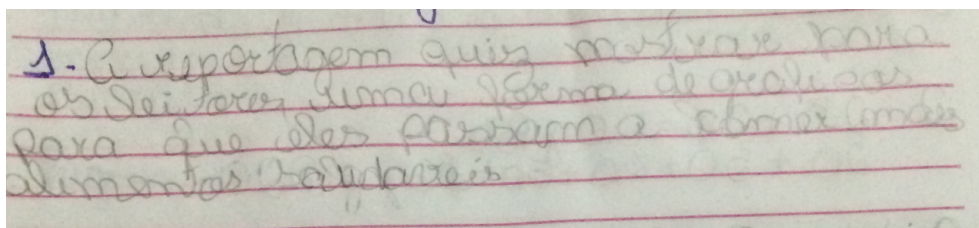 1. A reportagem quis mostrar para
os leitores uma forma de graficos
para que eles possam a comer mais
alimentos saudaveis